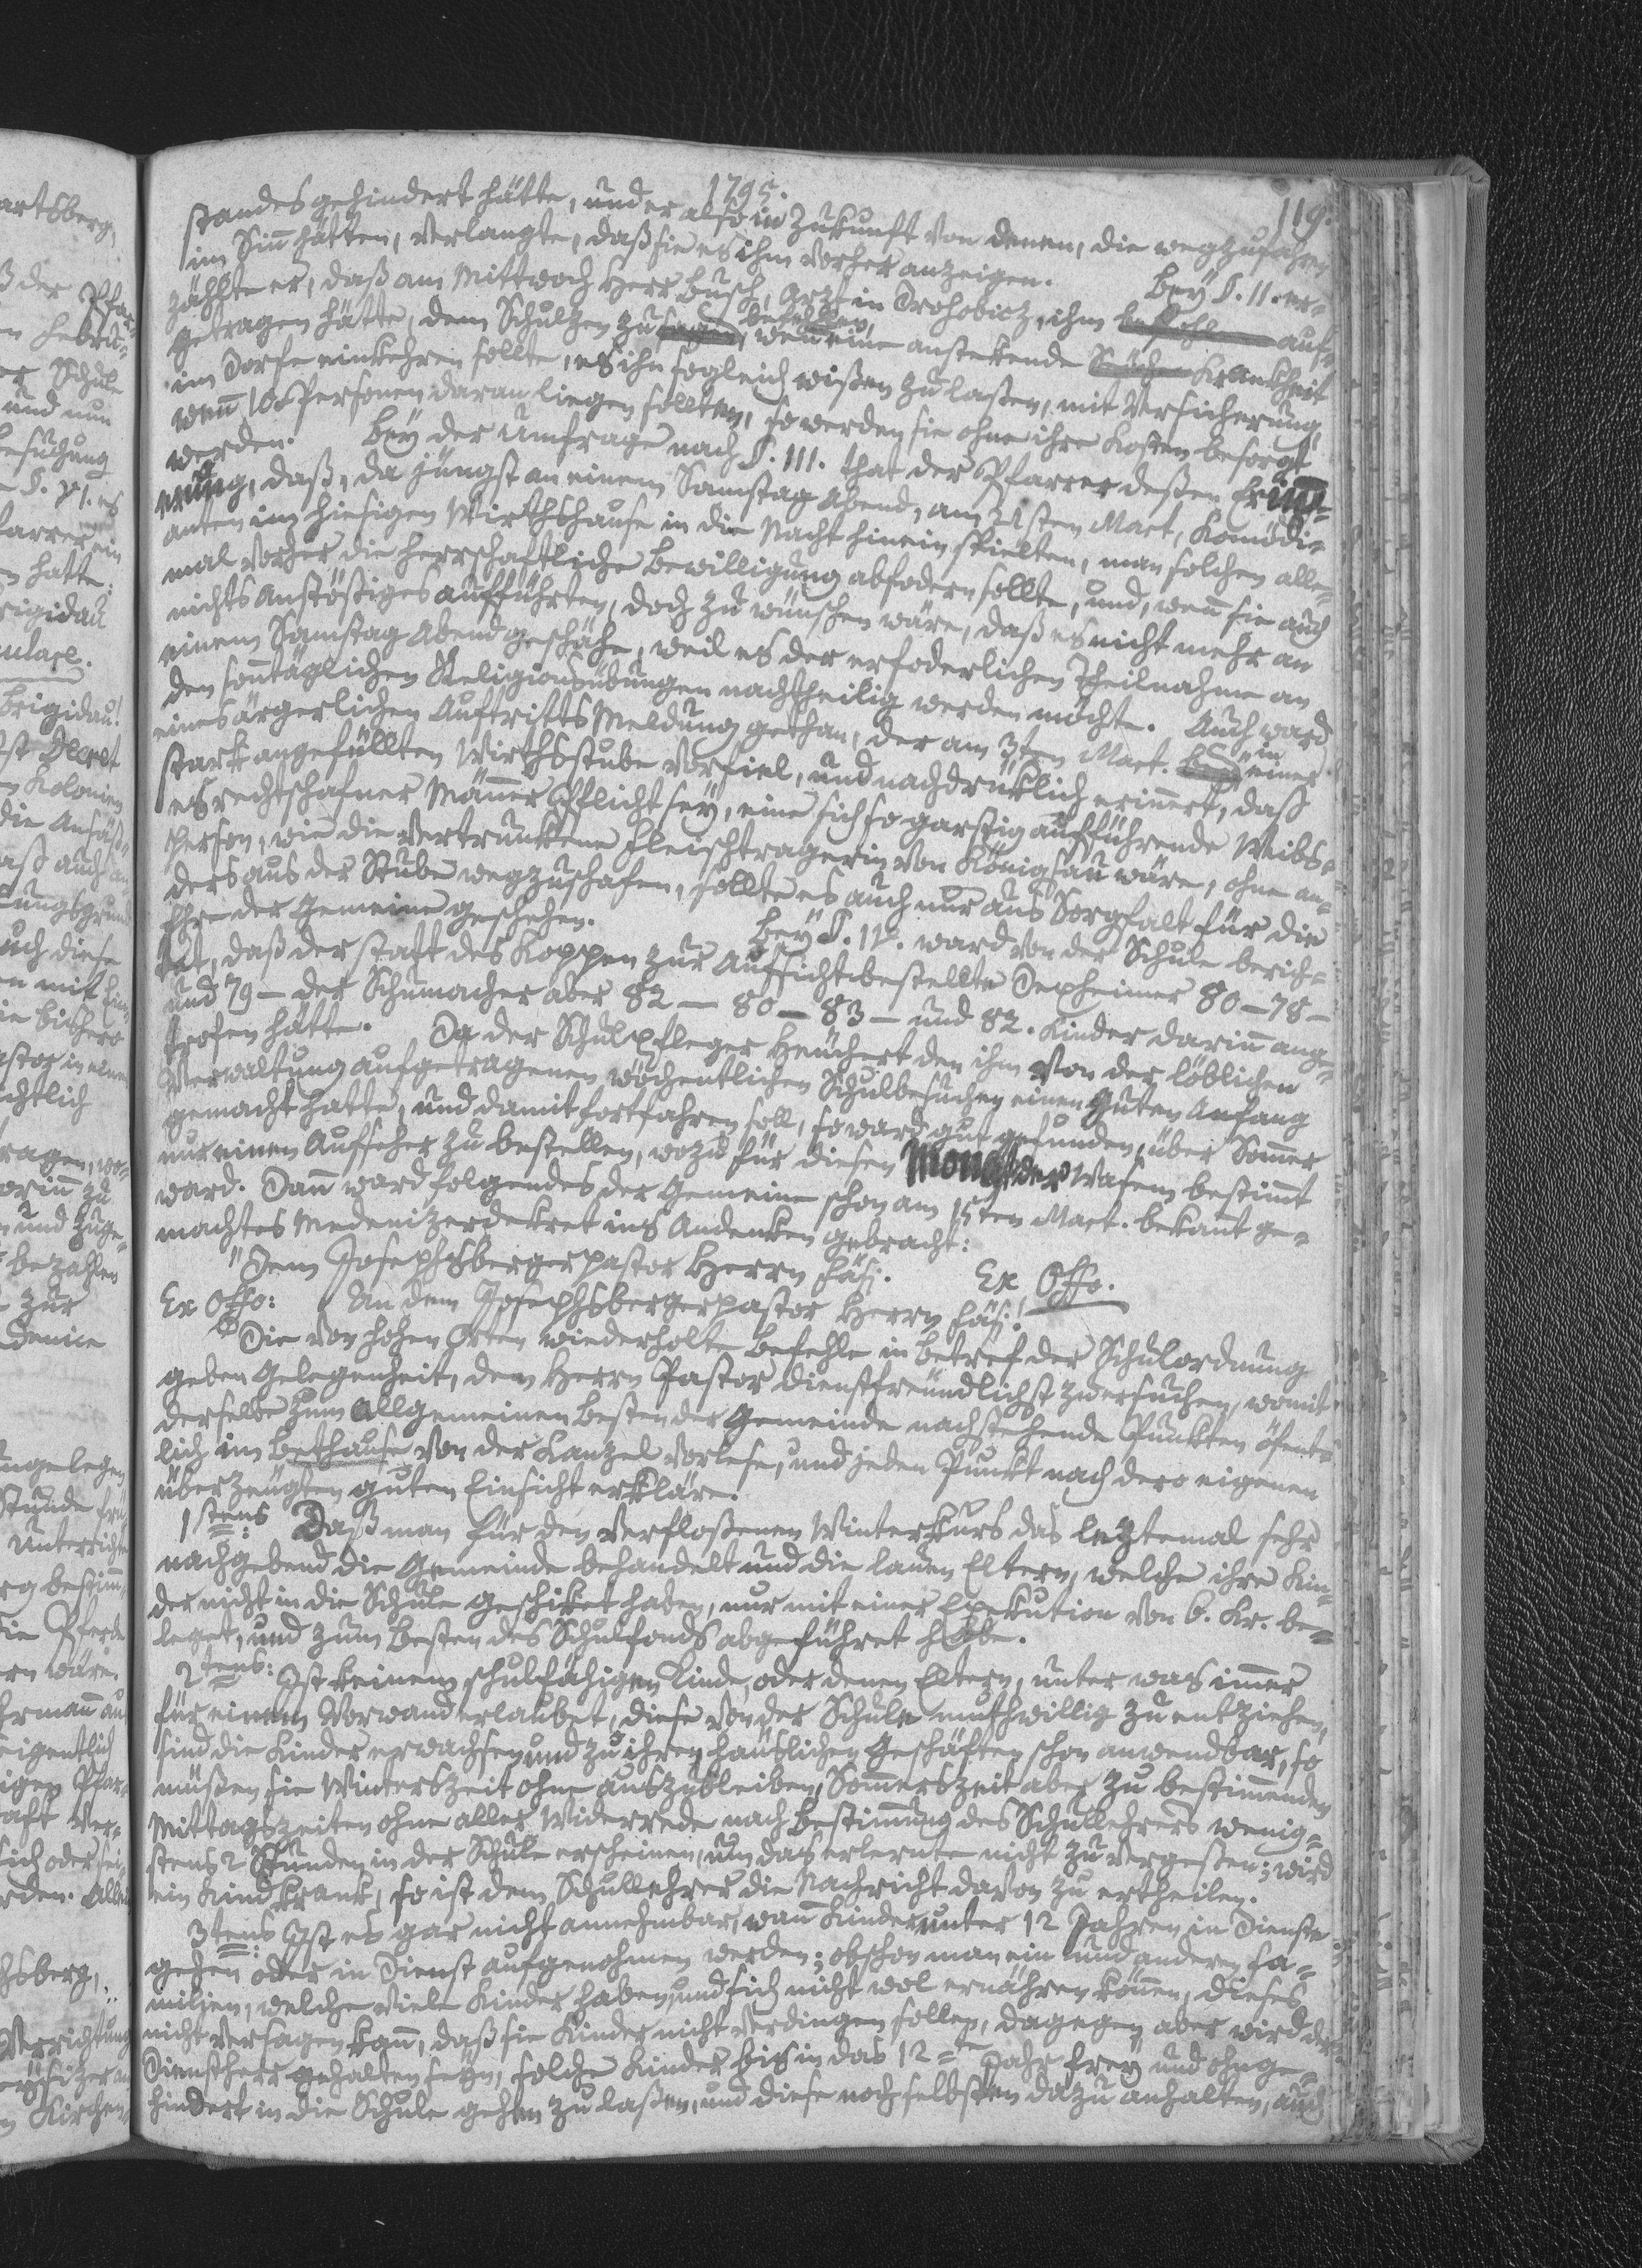 1795.
119.
standes gehindert hätte, und er also in Zukunft von denen, die wegzufahren
im Sinn hätten, verlangte, daß sie es ihm vorher anzeigen. Bey §. II. er-
zählte er, daß am Mittwoch Herr Busch, Arzt in Drohobicz, ihm befohlen auf-
getragen hätte, dem Schulzen zu sagen befehlen, wenn eine anstekende Seuche Krankheit
im Dorfe einkehren sollte, es ihn sogleich wißen zu laßen, mit Versicherung,
wenn 100 Personen daran liegen sollten, so werden sie ohne ihre Kosten besorgt
werden. Bey der Umfrage nach §. III. that der Pfarrer deßen Erin̄e-
rung, daß, da jüngst an einem Samstag Abend, am 21sten Mart, Komödi-
anten im hiesigen Wirthshause in die Nacht hinein spielten, man solchen alle-
mal vorher die herrschaftliche Bewilligung abfodern sollte, und, wenn sie auch
nichts Anstößiges aufführten, doch zu wünschen wäre, daß es nicht mehr an
einem Samstag Abend geschähe, weil es der erfoderlichen Theilnahme an
den sonntäglichen Religionsübungen nachtheilig werden möchte. Auch ward
eines ärgerlichen Auftritts Meldung gethan, der am 3ten Mart. in einer
stark angefüllten Wirthsstube vorfiel, und nachdrüklich erinnert, daß
es rechtschafner Männer Pflicht sey, eine sich so garstig aufführende Weibs-
person, wie die vertrunkene Fleischtragerin von Königsau wäre, ohne an-
ders aus der Stube wegzuschafen, sollte es auch nur aus Sorgfalt für die
Ehre der Gemeine geschehen. Bey §. IV. ward von der Schule berich-
tet, daß der statt des Koppen zur Aufsicht bestellte Dexheimer 80 — 78 —
und 79 — der Schumacher aber 82 — 80 — 83 — und 82. Kinder darinn ange-
trofen hätte. Da der Schulpfleger Heuchert den ihm von der löblichen
Verwaltung aufgetragenen wöchentlichen Schulbesuchen einen guten Anfang
gemacht hatte, und damit fortfahren soll, so ward gut gefunden, über Sommer
nur einen Aufseher zu bestellen, wozu für diesen Monat der Wasem bestimmt
ward. Dann ward folgendes der Gemeine schon am 15ten Mart. bekannt ge-
machtes Medenizerdekret ins Andenken gebracht:
"Dem Josephsbergerpastor Herrn Fäsi. Ex Offo.
Ex Offo: An dem Josephsbergerpastor Herrn Fäsi!
Die von hohen Orten wiederholte Befehle in Betref der Schulordnung
geben Gelegenheit, den Herrn Pastor dienstfreundlichst zu ersuchen, womit
derselbe zum allgemeinen Besten der Gemeinde nachstehende Punkten öfent-
lich im Bethause von der Kanzel vorlese, und jeden Punkt nach dero eigenen
überzeugten guten Einsicht erkläre.
1stens Daß man für den verfloßenen Winterkurs das leztemal sehr
nachgebend die Gemeinde behandelt und die lauen Eltern, welche ihre Kin-
der nicht in die Schule geschiket haben, nur mit einer Exekution von 6. Kr. be-
leget, und zum Besten des Schulfonds abgeführet habe.
2tens: Ist keinem schulfähigen Kinde, oder denen Eltern, unter was immer
für einem Vorwand erlaubet, diese von der Schule muthwillig zu entziehen,
sind die Kinder erwachsen und zu ihren häuslichen Geschäften schon anwendbar, so
müßen sie Winterszeit ohne auszubleiben, Sommerszeit aber zu bestimmenden
Mittagszeiten ohne aller Widerrede nach Bestimmung des Schullehrers wenig-
stens 2 Stunden in der Schule erscheinen, um das erlernte nicht zu vergeßen; wird
ein Kind krank, so ist dem Schullehrer die Nachricht davon zu ertheilen.
3tens: Ist es gar nicht annehmbar, wann Kinder unter 12 Jahren in Dienste
gehen oder in Dienst aufgenohmen werden; obschon man ein und anderen Fa-
milien, welche viele Kinder haben, und sich nicht wol ernähren können, dieses
nicht versagen kann, daß sie Kinder nicht verdingen sollen, dagegen aber wird der
Dienstherr gehalten seyn, solche Kinder bis in das 12-te Jahr frey und ohnge-
hindert in die Schule gehen zu laßen, und diese noch selbsten dazu anhalten, auch